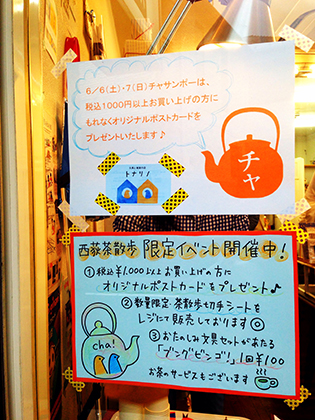 6/6(土)・7(日)チャサンポーは、
税込1000円以上お買い上げの方に
もれなくオリジナルポストカードを
プレゼントいたします♪
チャ
トナリノ
西荻茶散歩 限定イベント開催中!
①税込¥1,000以上お買い上げの方に
オリジナルポストカードをプレゼント♪
②数量限定・茶散歩切手シートを
レジにて販売しております◎
③おたのしみ文具セットがあたる
「ブングビンゴ!」1回¥100
お茶のサービスもございます
cha!